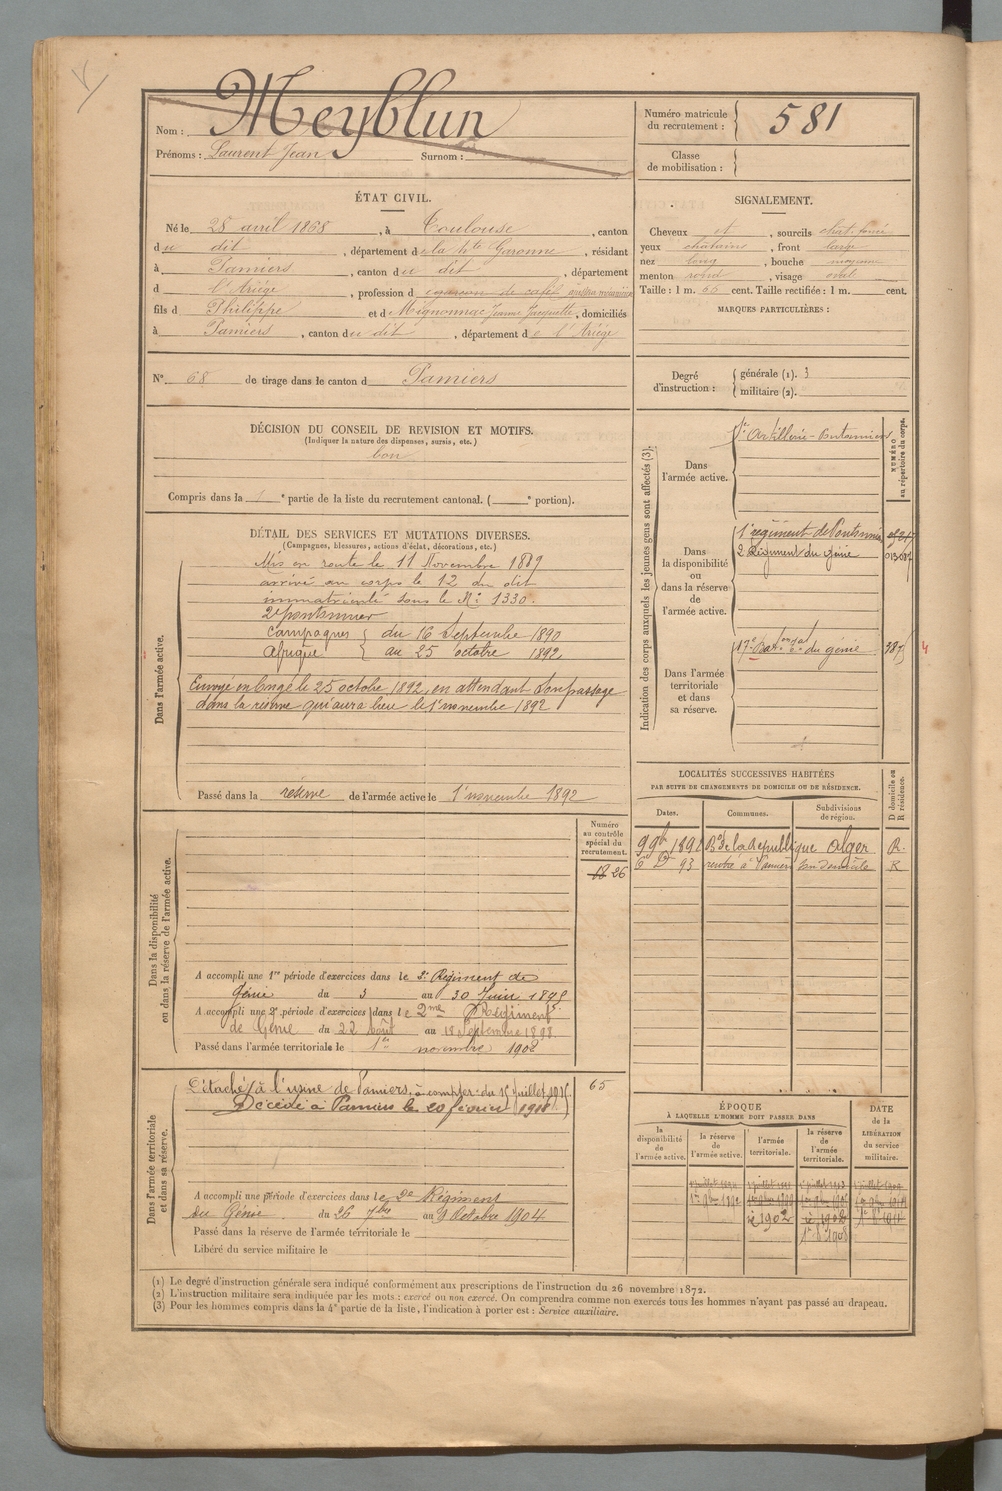 Nom : Meyblun
Prénoms : Laurent Jean Surnom :
Numéro matricule du recrutement : 581
Classe de mobilisation :
ÉTAT CIVIL.
Né le 28 avril 1868, à Toulouse, canton
du dit, département de la hte Garonne, résidant
à Pamiers, canton du dit, département
d l'Ariège, profession d garçon de café
fils d Philippe et d Mignonnac Jeanne Jacquette, domiciliés
à Pamiers, canton du dit, département de l'Ariège
N° 68 de tirage dans le canton d Pamiers
SIGNALEMENT.
Cheveux et, sourcils chat. foncé
yeux chatains, front large
nez long, bouche moyenne
menton rond, visage oval
Taille : 1 m. 66 cent. Taille rectifiée : 1 m. cent.
MARQUES PARTICULIÈRES :
Degré d'instruction : générale (1). 3
militaire (2).
DÉCISION DU CONSEIL DE REVISION ET MOTIFS.
(Indiquer la nature des dispenses, sursis, etc.)
bon
Compris dans la 1e partie de la liste du recrutement cantonal. ( e portion).
DÉTAIL DES SERVICES ET MUTATIONS DIVERSES.
(Campagnes, blessures, actions d'éclat, décorations, etc.)
Dans l'armée active.
Mis en route le 11 Novembre 1889
arrivé au corps le 12 du dit
immatriculé sous le N° 1330.
2e pontonnier
Campagnes du 16 Septembre 1890
Afrique au 25 octobre 1892
Envoyé en Congé le 25 octobre 1892, en attendant son passage
dans la réserve qui aura lieu le 1er novembre 1892
Passé dans la réserve de l'armée active le 1er novembre 1892
Indication des corps auxquels les jeunes gens sont affectés (3)
NUMÉRO au répertoire du corps.
Dans l'armée active.
Artillerie-Pontonniers
Dans la disponibilité ou dans la réserve de l'armée active.
1er régiment de Pontonniers
2 Régiment du génie
Dans l'armée territoriale et dans sa réserve.
17e Baton du génie
LOCALITÉS SUCCESSIVES HABITÉES
PAR SUITE DE CHANGEMENTS DE DOMICILE OU DE RÉSIDENCE.
Dates. Communes. Subdivisions de région. D domicile ou R résidence.
9 9b 1892 Bd de la République Alger R.
6 Xb 93 rentré à Pamiers son domicile R
Dans la disponibilité ou dans la réserve de l'armée active.
Numéro au contrôle spécial du recrutement.
26
A accompli une 1re période d'exercices dans le 2e Régiment de
Génie du 3 au 30 Juin 1895
A accompli une 2e période d'exercices dans le 2me Régiment
de Génie du 22 Août au 18 Septembre 1898
Passé dans l'armée territoriale le 1er novembre 1902
Dans l'armée territoriale et dans sa réserve.
Détaché à l'usine de Pamiers, à compter du 15 juillet 1915.
Décédé à Pamiers le 20 février 1918
65
A accompli une période d'exercices dans le 2e Régiment
du Génie du 26 7bre au 9 Octobre 1904
Passé dans la réserve de l'armée territoriale le
Libéré du service militaire le
ÉPOQUE
À LAQUELLE L'HOMME DOIT PASSER DANS
la disponibilité de l'armée active. la réserve de l'armée active. l'armée territoriale. la réserve de l'armée territoriale.
DATE de la LIBÉRATION du service militaire.
(1) Le degré d'instruction générale sera indiqué conformément aux prescriptions de l'instruction du 26 novembre 1872.
(2) L'instruction militaire sera indiquée par les mots : exercé ou non exercé. On comprendra comme non exercés tous les hommes n'ayant pas passé au drapeau.
(3) Pour les hommes compris dans la 4e partie de la liste, l'indication à porter est : Service auxiliaire.